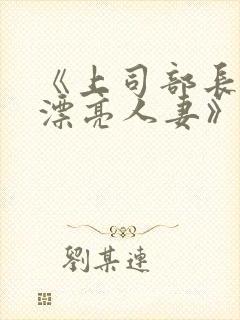 《上司部長
漂亮人妻》
劉某連